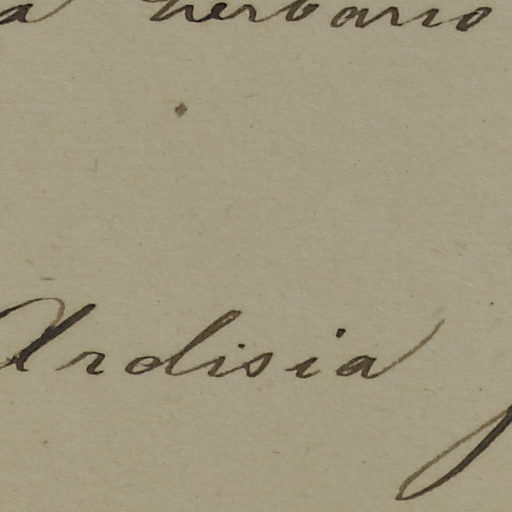 a herbario
Ardisia